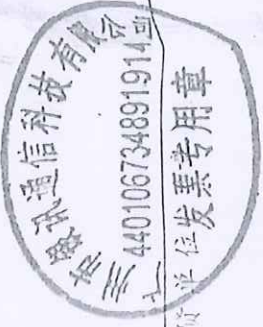 广州市敏讯通信科技有限公司
440106734891914
发票专用章
货单位